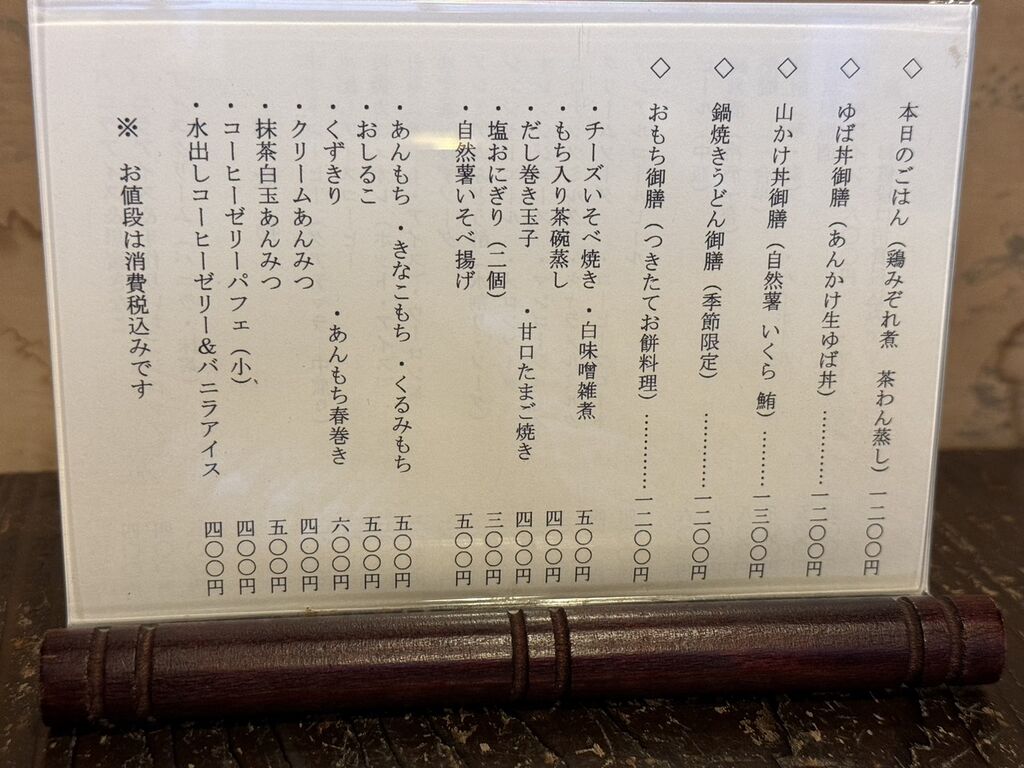 ◇ 本日のごはん（鶏みぞれ煮　茶わん蒸し）一二〇〇円
◇ ゆば丼御膳（あんかけ生ゆば丼）…………一二〇〇円
◇ 山かけ丼御膳（自然薯 いくら 鮪）………一三〇〇円
◇ 鍋焼きうどん御膳（季節限定）…………一二〇〇円
◇ おもち御膳（つきたてお餅料理）…………一二〇〇円
・チーズいそべ焼き ・白味噌雑煮 五〇〇円
・もち入り茶碗蒸し 四〇〇円
・だし巻き玉子 ・甘口たまご焼き 四〇〇円
・塩おにぎり（二個） 三〇〇円
・自然薯いそべ揚げ 五〇〇円
・あんもち ・きなこもち ・くるみもち 五〇〇円
・おしるこ 五〇〇円
・くずきり ・あんもち春巻き 六〇〇円
・クリームあんみつ 四〇〇円
・抹茶白玉あんみつ 五〇〇円
・コーヒーゼリーパフェ（小） 四〇〇円
・水出しコーヒーゼリー＆バニラアイス 四〇〇円
※ お値段は消費税込みです